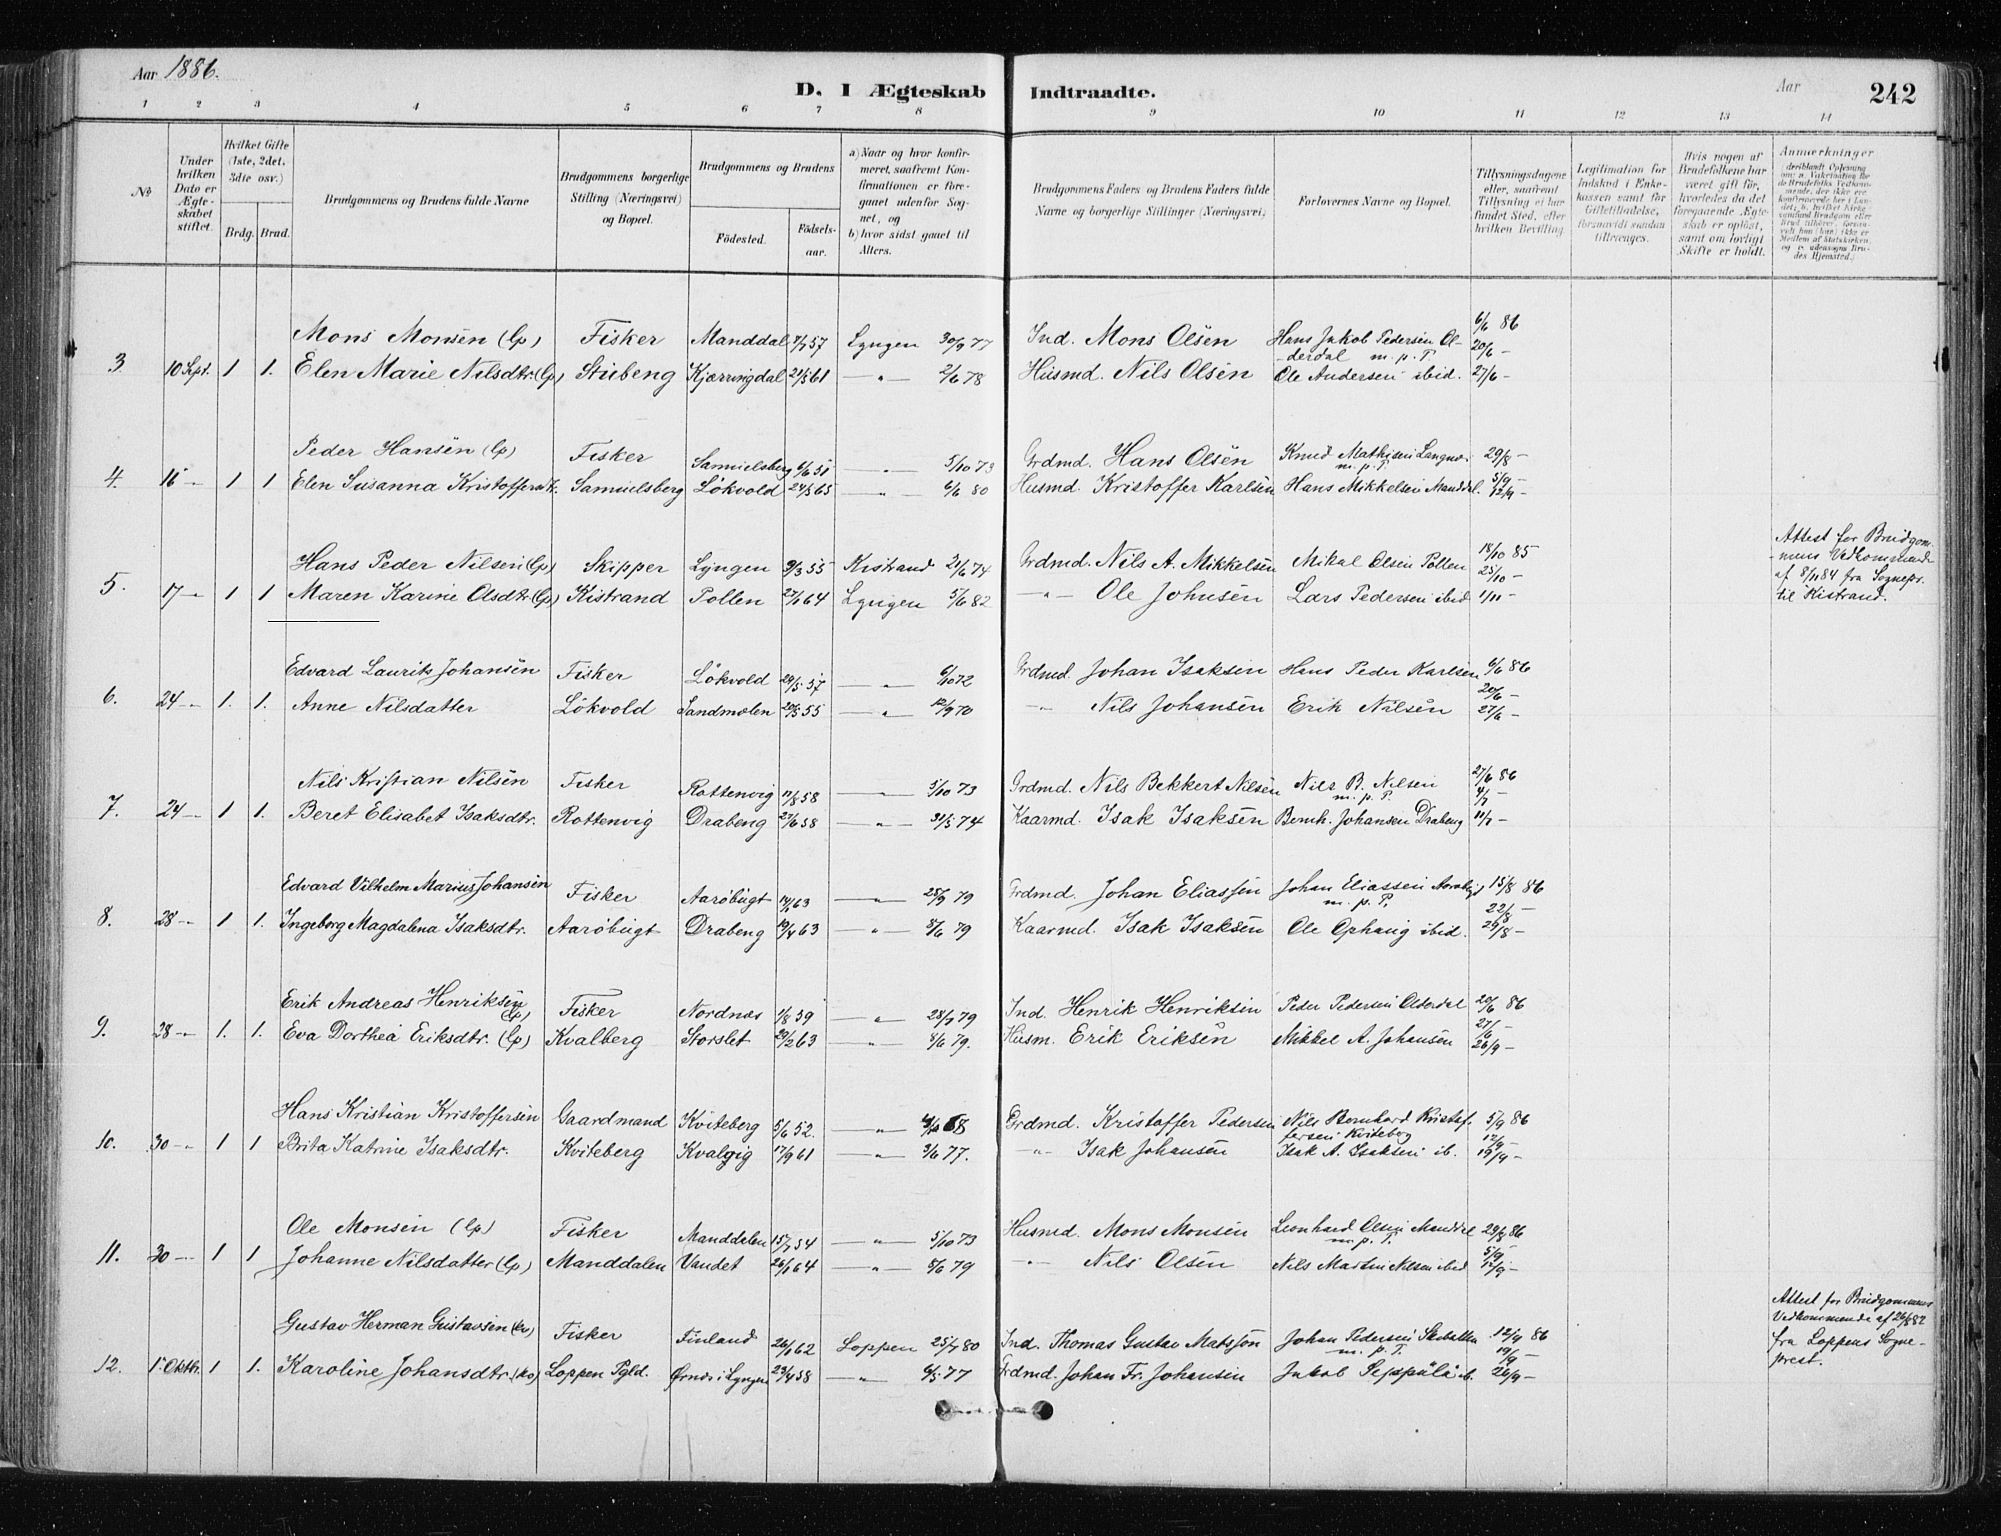 Aar 1886.
D. I Ægteskab Indtraadte.
Aar
242
1 2 3 4 5 6 7 8 9 10 11 12 13 14
No
Under hvilken Dato er Ægteskabet stiftet.
Hvilket Gifte (1ste, 2det, 3die osv.)
Brdg. Brud.
Brudgommens og Brudens fulde Navne
Brudgommens borgerlige Stilling (Næringsvei) og Bopæl.
Brudgommens og Brudens
Fødested.
Fødselsaar.
a) Naar og hvor konfirmeret, saafremt Konfirmationen er foregaaet udenfor Sognet, og
b) hvor sidst gaaet til Alters.
Brudgommens Faders og Brudens Faders fulde Navne og borgerlige Stillinger (Næringsvei)
Forlovernes Navne og Bopæl.
Tillysningsdagene eller, saafremt Tillysning ei har fundet Sted, efter hvilken Bevilling.
Legitimation for Indskud i Enkekassen samt for Giftetilladelse, forsaavidt saadan tiltrænges.
Hvis nogen af Brudefolkene har været gift før, hvorledes da det foregaaende Ægteskab er opløst, samt om lovligt Skifte er holdt.
Anmærkninger
Mons Monsen (Lp) Fisker Manddal 7/7 57 Lyngen 30/9 77 Ind. Mons Olsen Hans Jakob Pedersen Ol- 6/6 86
-derdal m. p. P. 20/6 -
3. 10 Sept. 1 1. Elen Marie Nilsdtr. (Lp) Stubeng Kjærringdal 21/3 61 — " — 2/6 78 Husmd. Nils Olsen Ole Andersen ibid. 27/6 -
Peder Hansen (Lp) Fisker Samuelsberg 6/6 51 — " — 5/10 73 Grdmd. Hans Olsen Knud Mathisen Langnæs 29/8 -
m. p. P. 5/9 -
4. 16 - 1 1 Elen Susanna Kristoffersdtr. Samuelsberg Lökvold 24/5 65 — " — 6/6 80 Husmd. Kristoffer Karlsen Hans Mikkelsen Manddal. 12/9 -
Hans Peder Nilsen (Lp) Skipper Lyngen 9/3 55 Kistrand 21/6 74 Grdmd. Nils A. Mikkelsen Mikal Olsen Pollen 18/10 85
25/10 -
5. 17 - 1 1 Maren Karine Olsdtr. (Lp) Kistrand Pollen 27/1 64 Lyngen 5/6 82 — " — Ole Johnsen Lars Pedersen ibid 1/11 -
Attest for Brudgom-
mens Vedkommende
af 8/11 84 fra Sognepr.
til Kistrand.
Edvard Laurits Johansen Fisker Lökvold 29/5 57 — " — 6/10 72 Grdmd. Johan Isaksen Hans Peder Karlsen 6/6 86
20/6 -
6. 24 - 1. 1. Anne Nilsdatter Lökvold Sandmælen 20/3 55 — " — 12/9 70 — " — Nils Johansen Erik Nilsen 27/6 -
Nils Kristian Nilsen Fisker Rottenvig 17/8 58 — " — 5/10 73 Grdmd. Nils Bekkert Nilsen Nils B. Nilsen 27/6 86
m. p. P. 4/7
7. 24 - 1 1. Beret Elisabet Isaksdtr. Rottenvig Drabeng 27/6 58 — " — 31/5 74 Kaarmd. Isak Isaksen Bernh. Johansen Drabeng 11/7 -
Edvard Vilhelm Marius Johansen Fisker Aaröbugt 63 — " — 28/9 79 Grdmd. Johan Eliassen Johan Eliassen Aarøbugt 15/8 86
m. p. P. 22/8 -
8. 28 - 1 1. Ingeborg Magdalena Isaksdtr. Aaröbugt Drabeng 19/4 63 — " — 8/6 79 Kaarmd. Isak Isaksen Ole Ophaug ibid. 29/8 -
Erik Andreas Henriksen (Lp) Fisker Nordnæs 1/8 59 — " — 28/9 79 Ind. Henrik Henriksen Peder Pedersen Olderdal 20/6 86
27/6 -
9. 28 - 1. 1. Eva Dorthea Eriksdtr. (Lp) Kvalberg Storslet 22/2 63 — " — 8/6 79. Husm. Erik Eriksen Mikkel A. Johansen 26/9 -
Hans Kristian Kristoffersen Gaardmand Kviteberg 5/6 52. — " — 68 Grdmd. Kristoffer Pedersen Nils Bernhard Kristof- 5/9 86
fersen Kviteberg 12/9 -
10. 30 - 1 1 Brita Katrine Isaksdtr. Kviteberg Kvalvig 17/9 61 — " — 3/6 77. — " — Isak Johansen Isak A. Isaksen ib. 19/9 -
Ole Monsen (Lp) Fisker Manddalen 15/7 54 — " — 5/10 73 Husmd. Mons Monsen Leonhard Olsen Manddal 29/8 86
m. p. P. 5/9 -
11. 30 - 1 1 Johanne Nilsdatter (Lp) Manddalen Vandet 26/1 64 — " — 8/6 79 — " — Nils Olsen Nils Martin Nilsen ibid 12/9 -
Gustav Herman Gustavsen (Kv) Fisker Finland 26/1 62 Loppen 25/7 80 Ind. Thomas Gustav Matsson Johan Pedersen 12/9 86
m. p. P. 19/9 -
12. 1 Oktbr. 1 1. Karoline Johansdtr. (Kv) Loppen Pgld. Ørnæs i Lyngen 23/4 58 — " — 6/5 77 Grdmd. Johan Fr. Johansen Jakob Seppälä ib. 26/9 -
Attest for Brudgommens
Vedkommende af 24/6 82
fra Loppens Sogne-
prest.